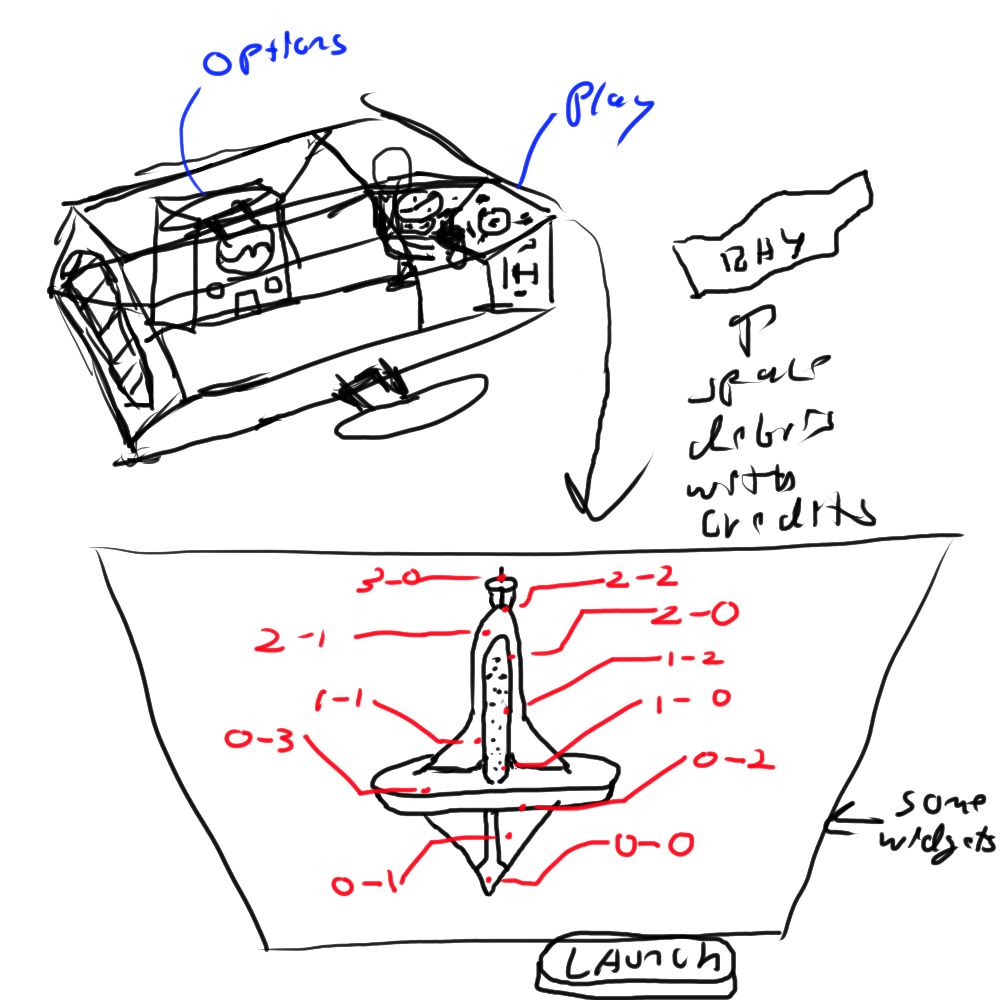 Options
Play
BHY
space
debris
with
credits
3-0
2-2
2-0
2-1
1-2
1-1
1-0
0-3
0-2
some
widgets
0-0
0-1
LAUNCH